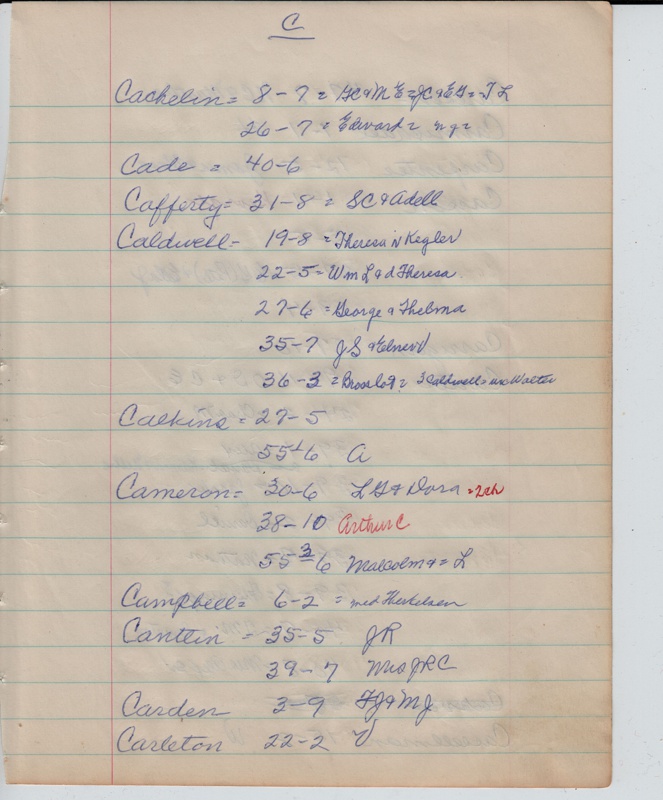 C
Cachelin = 8-7 = GC & M E = JC & EG = J L
26-7 = Edward =
Cade = 40-6
Cafferty = 31-8 = SC & Adell
Caldwell - 19-8 = Theresa N Kegler
22-5 = Wm L & d Theresa
27-6 = George & Thelma
35-7 JS &
36-3 = = 3 Caldwell =
Calkins = 27-5
55-6 A
Cameron = 30-6 L G & Dora = 2ch
38-10 Arthur C
55 3-6 Malcolm & = L
Campbell = 6-2 =
Cantlin = 35-5 JR
39-7 Mrs JRC
Carden 3-9 FJ & MJ
Carleton 22-2 V